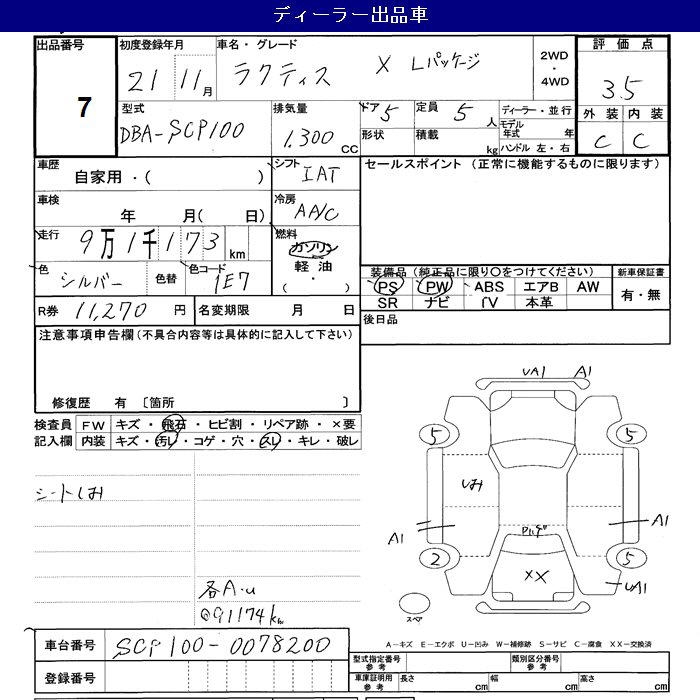 ディーラー出品車
出品番号 初度登録年月 車名・グレード 2WD ・ 4WD 評価点
7 21 11月 ラクティス X Lパッケージ 3.5
型式 排気量 ドア 5 定員 5人 ディーラー・並行 外装 内装
DBA-SCP100 1.300 CC 形状 積載 kg モデル年式 年 C C
ハンドル 左・右
車歴 シフト セールスポイント (正常に機能するものに限ります)
自家用・( ) IAT
車検 冷房
年 月( 日) AA/C
走行 燃料
9万1千173 km ガソリン
色 色替 色コード 軽油 装備品 (純正品に限り〇をつけてください) 新車保証書
シルバー 1E7 ( ・ ) PS PW ABS エアB AW 有・無
SR ナビ TV 本革
R券 11,270 円 名変期限 月 日 後日品
注意事項申告欄(不具合内容等は具体的に記入して下さい)
修復歴 有 〔箇所 〕
検査員 FW キズ・飛石・ヒビ割・リペア跡・×要
記入欄 内装 キズ・汚レ・コゲ・穴・スレ・キレ・破レ
シートしみ
各A・u
@91174km
UA1 A1
5 5
しみ
A1 A1
2 5
XX UA1
スペア
A-キズ E-エクボ U-凹み W-補修跡 S-サビ C-腐食 XX-交換済
車台番号 SCP100-0078200
登録番号
型式指定番号 参考 類別区分番号 参考
車庫証明用 参考 長さ cm 幅 cm 高さ cm